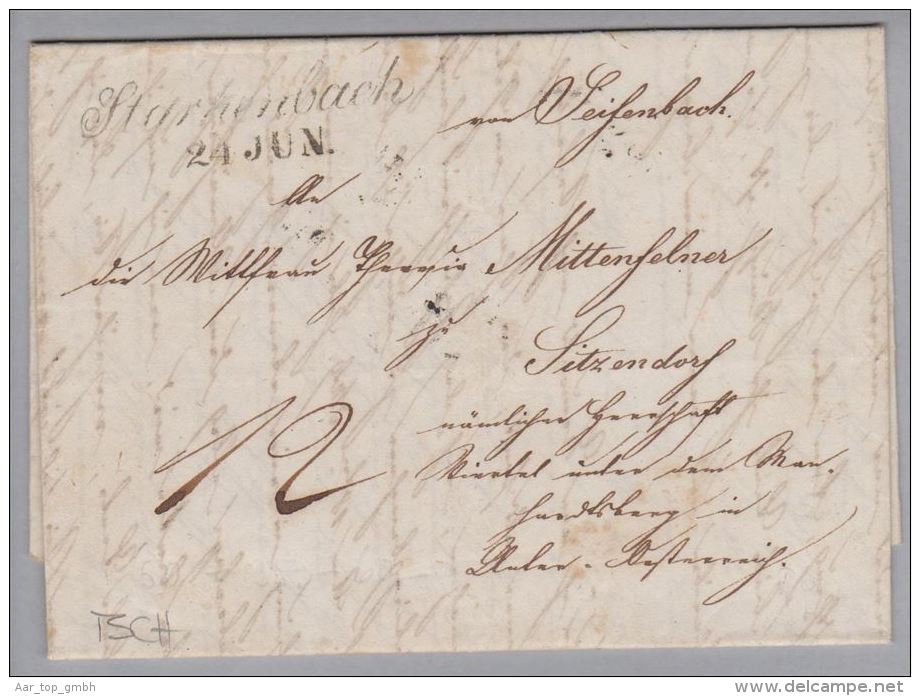 Starkenbach
24 JUN.
von Seifenbach.
An
die Wittfrau Theresia Mittenfelner
zu
Sitzendorf
nämlicher Herrschaft
Viertel unter dem Man-
hardtsberg in
Unter-Oesterreich.
12
TSCH
Aar_top_gmbh
www.delcampe.net